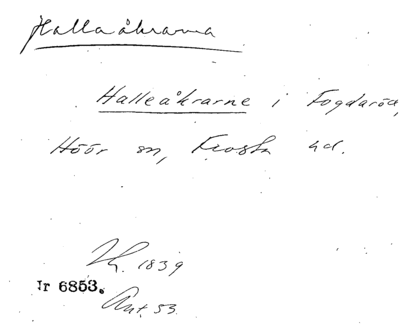 Hallaåkrarna
Halleåkrarne i Fogdaröd,
Höör sn, Frosta hd.
1839
Nr 6853.
Ant. 53.